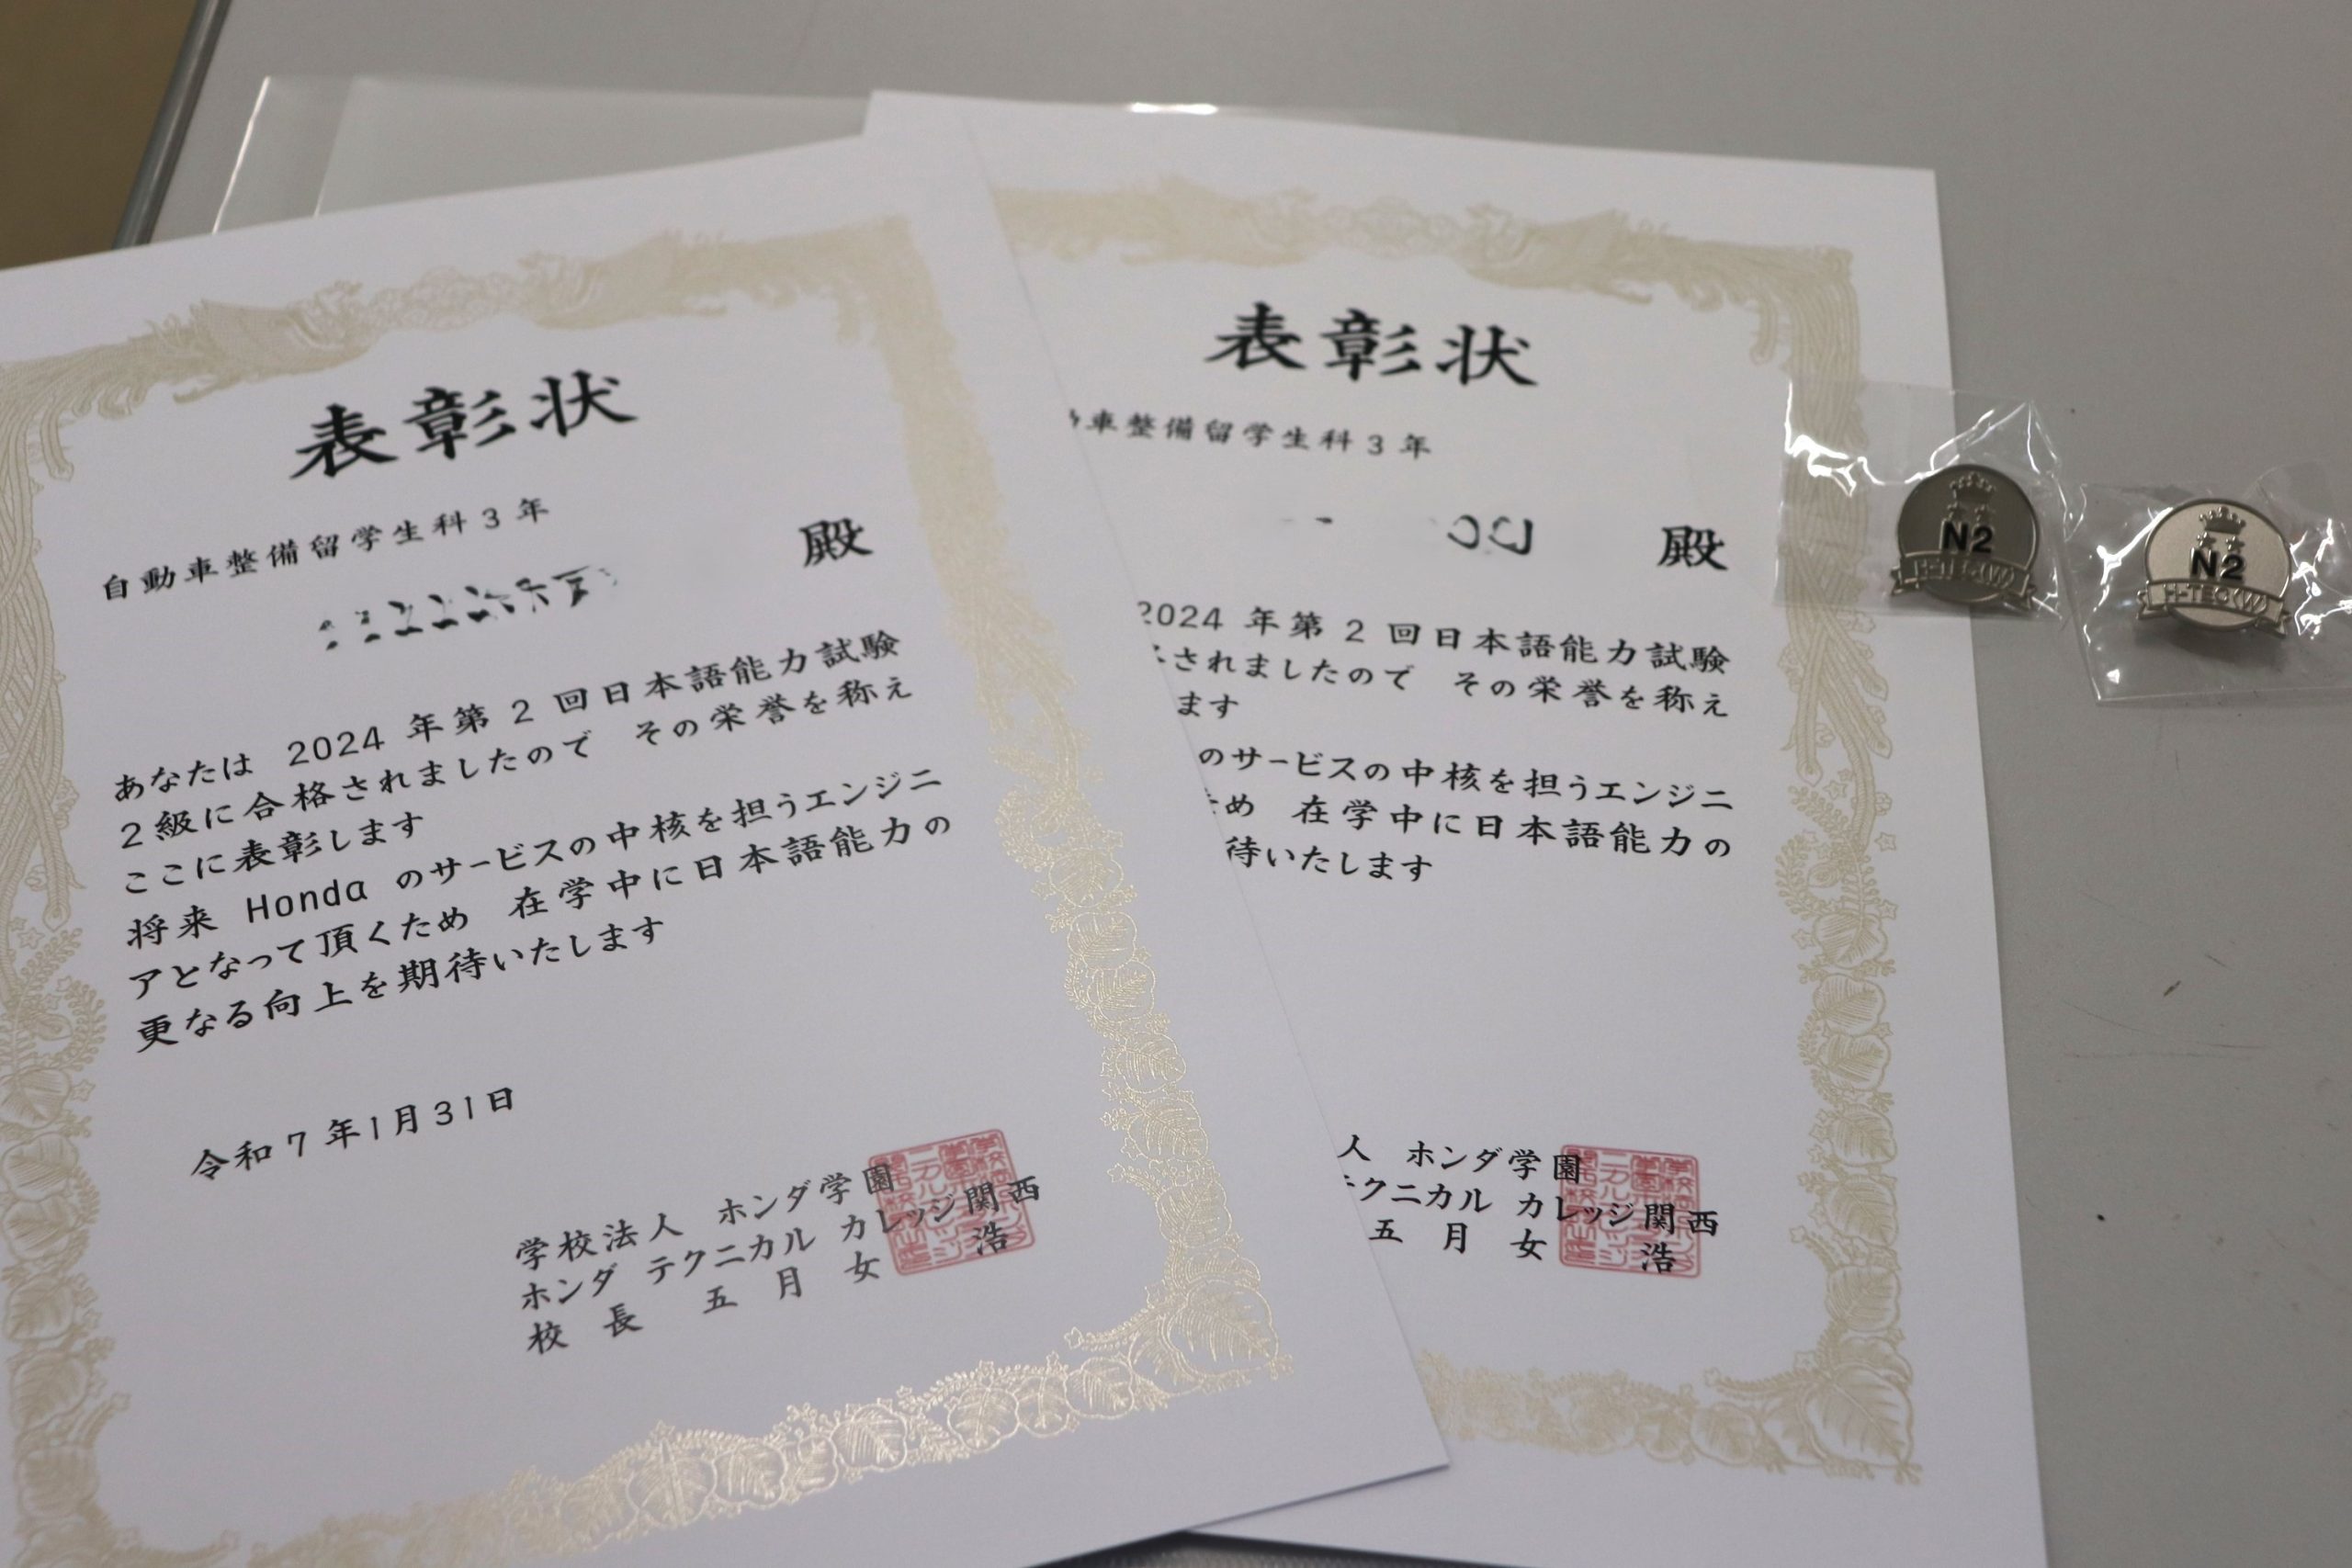 表彰状
自動車整備留学生科3年
殿
あなたは 2024 年第 2 回日本語能力試験
2級に合格されましたので その栄誉を称え
ここに表彰します
将来 Honda のサービスの中核を担うエンジニ
アとなって頂くため 在学中に日本語能力の
更なる向上を期待いたします
令和7年1月31日
学校法人 ホンダ学園
ホンダ テクニカル カレッジ関西
校長 五月女 浩
表彰状
車整備留学生科3年
殿
2024 年第 2 回日本語能力試験
されましたので その栄誉を称え
ます
のサービスの中核を担うエンジニ
め 在学中に日本語能力の
待いたします
人 ホンダ学園
クニカル カレッジ関西
五月女 浩
N2
H-TEC(W)
N2
H-TEC(W)